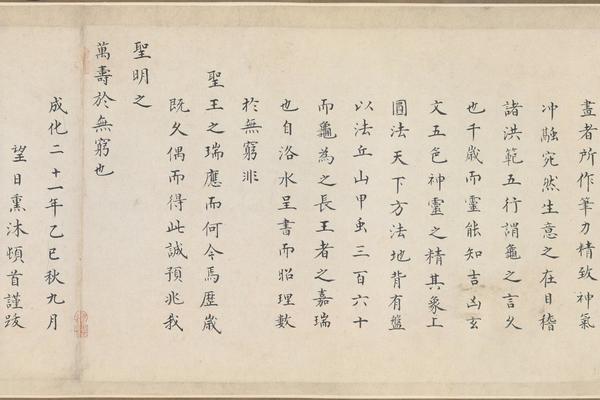 畫者所作筆力精致神氣
冲融宛然生意之在目稽
諸洪範五行謂龜之言久
也千歲而靈能知吉凶玄
文五色神靈之精其象上
圓法天下方法地背有盤
以法丘山甲虫三百六十
而龜為之長王者之嘉瑞
也自洛水呈書而昭理數
於無窮非
聖王之瑞應而何今焉歷歲
既久偶而得此誠預兆我
聖明之
萬壽於無窮也
成化二十一年乙巳秋九月
望日熏沐頓首謹跋